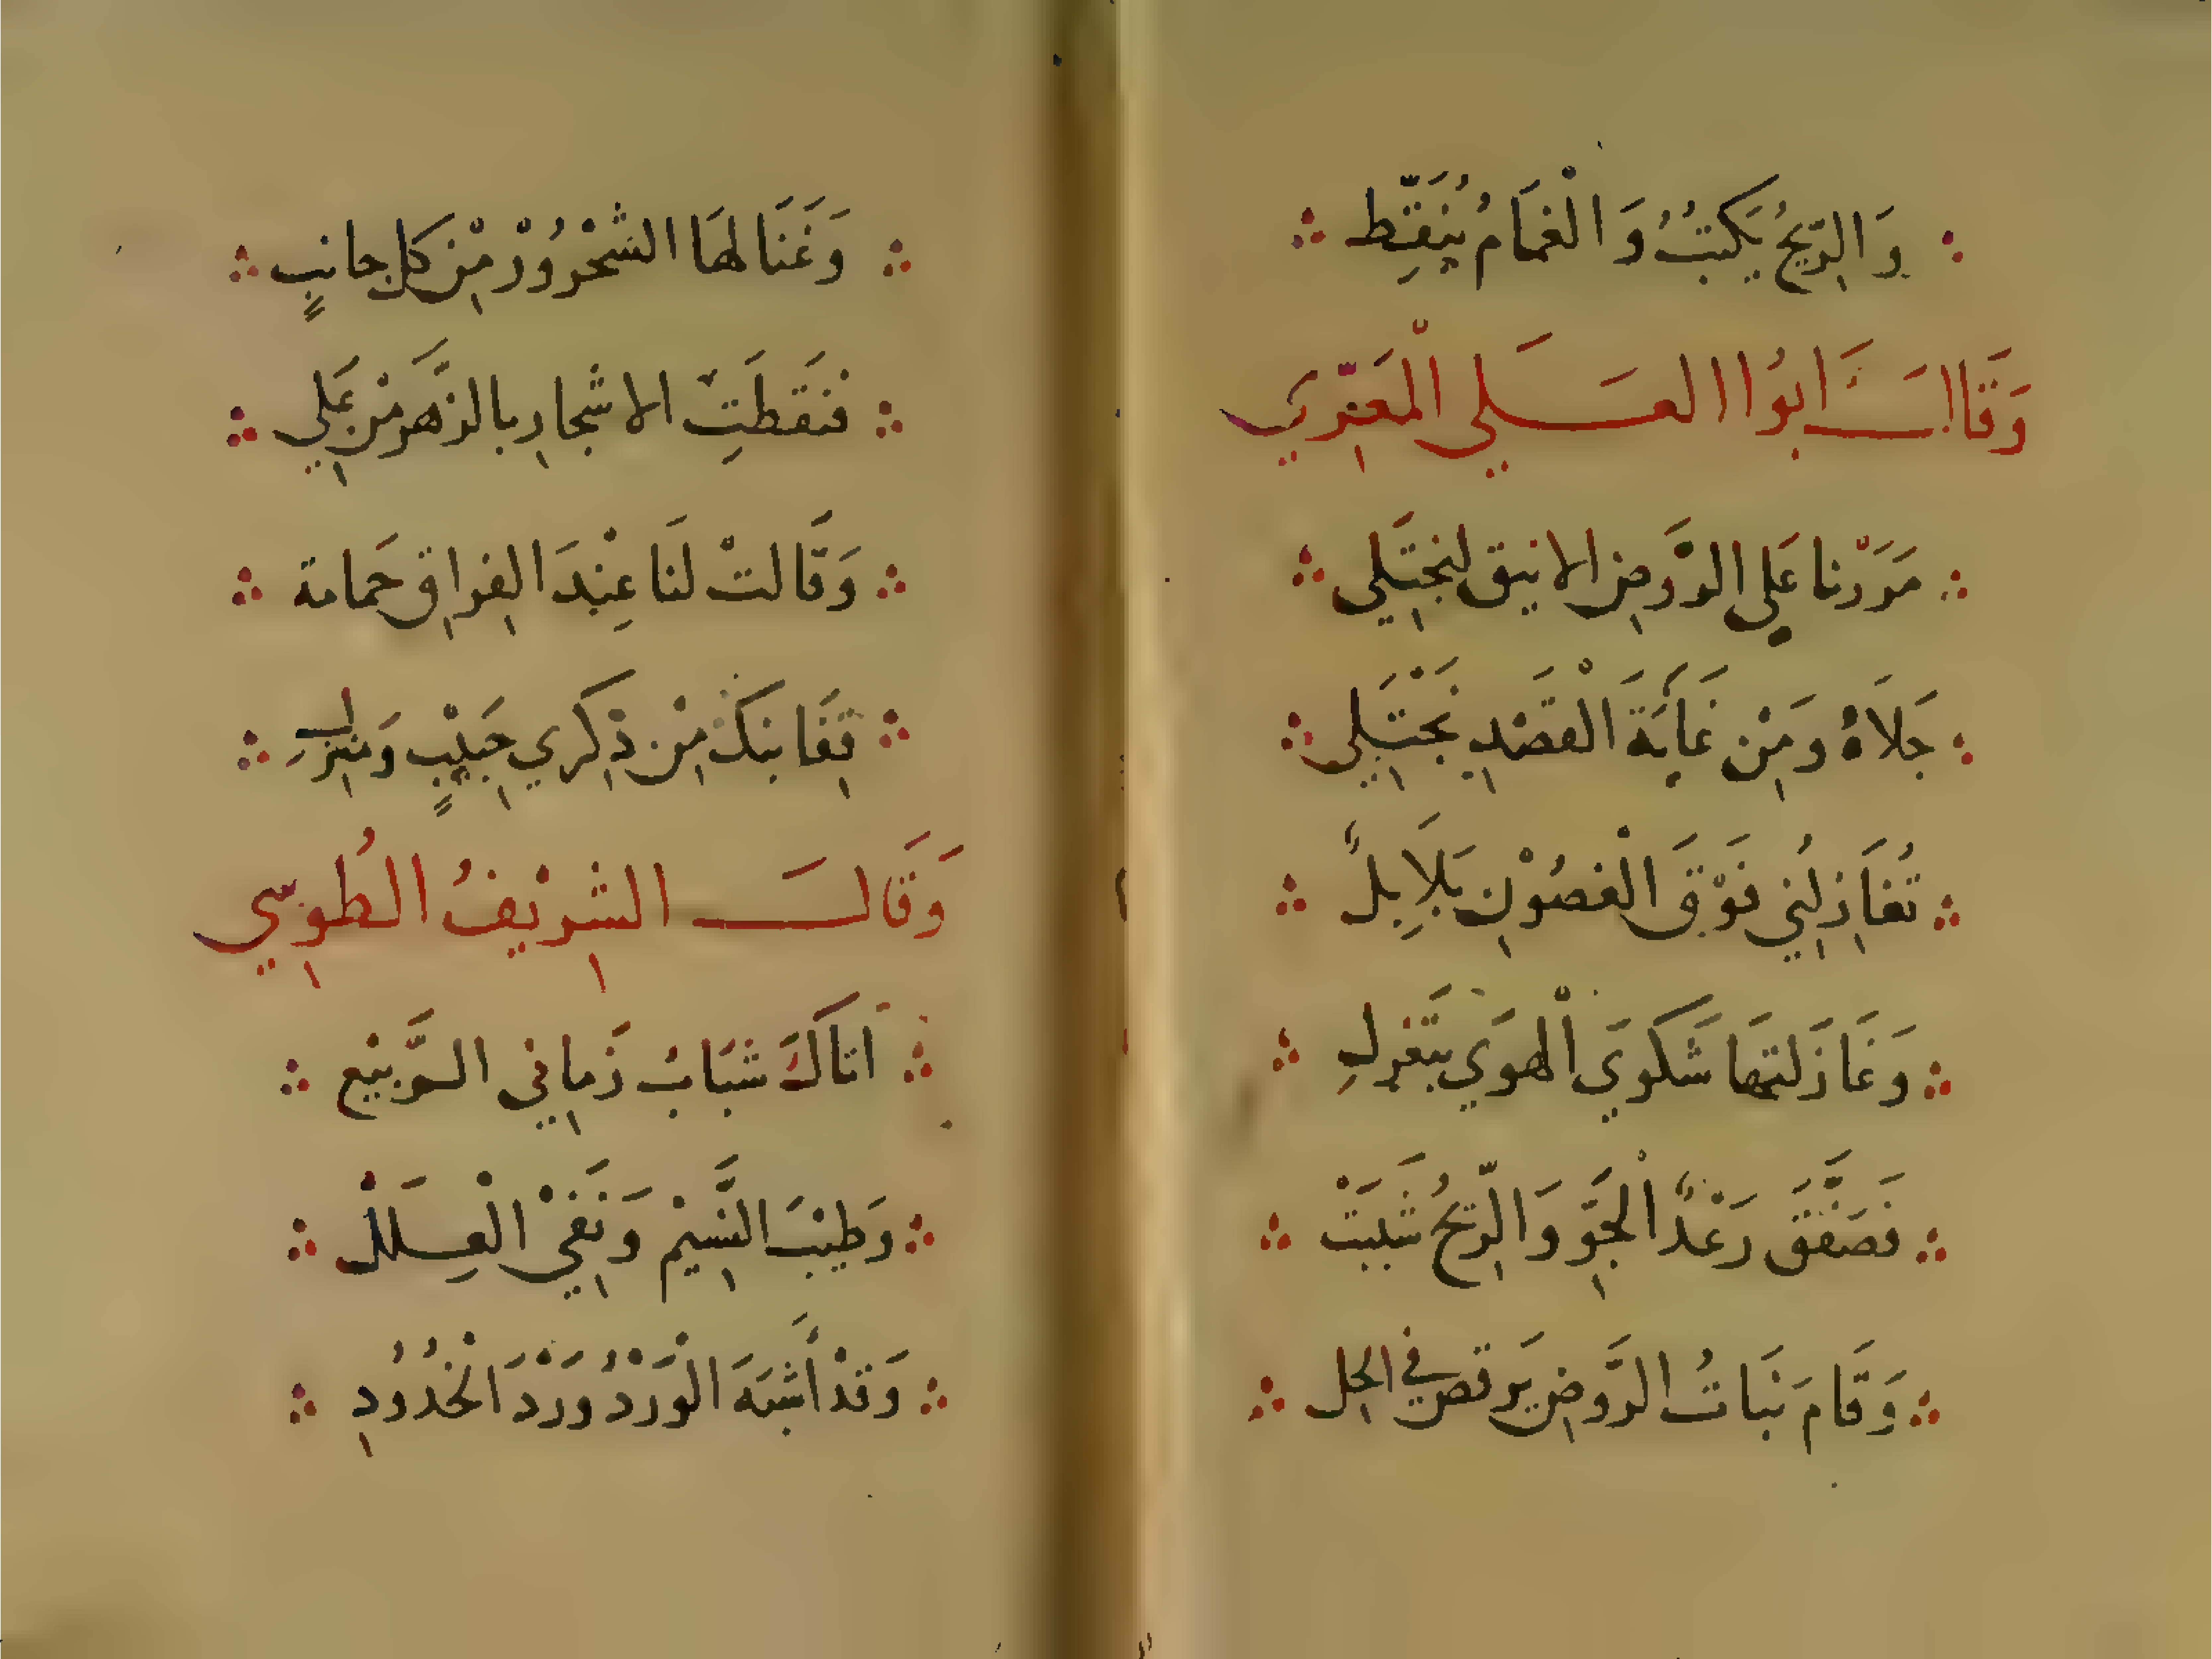 وَالرِّيحُ يَكتُبُ وَالْغَمَامُ يُنَقِّط
وَقَالَ ابُوا العَلي الْمَعَرّي
مَرَرْنا عَلى الرَّوضِ الانيق لنجتَلي
جَلَاهُ وَمِنْ غَايَةَ الْقَصْدِ نَجْتَلِي
تُغَازِلُنِي فَوْقَ الْغصُوْنِ بَلَابِلٌ
وَغَازَلتهَا شَكوَي الْهوَي بتَغزلِ
فَصَفَّقَ رَعْدٌ الْجَوِّ وَالرِّيحُ شَبَبَتْ
وَقَامَ نَبَاتُ الرَّوضِ يَرقص في الحلل
وَغَنَا لهَا الشَحْرُورْ مِنْ كل جانبٍ
فنَقطَتِ الاشجارِ بالزَهَر مِن عَلي
وَقَالتْ لنَا عِنْدَ الفراقِ حَمامة
قِفَا نبكْ مِنْ ذِكري حَبِيْبٍ وَمنزِلِ
وَقَالَ الشرِيْفُ الطُوسِي
اتاكَ شبَابُ زَمانِي الرَّبيْع
وَطِيْبَ النَّسِيْم وَنَفِيْ الْعِلَلْ
وَقدْ أَشبَهَ الْوَرْدُ وَرْدَ الْخُدُودِ